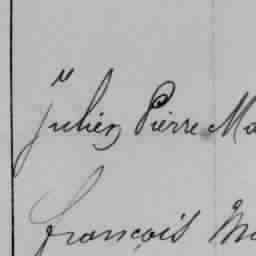 Julien Pierre Ma
françois Ma